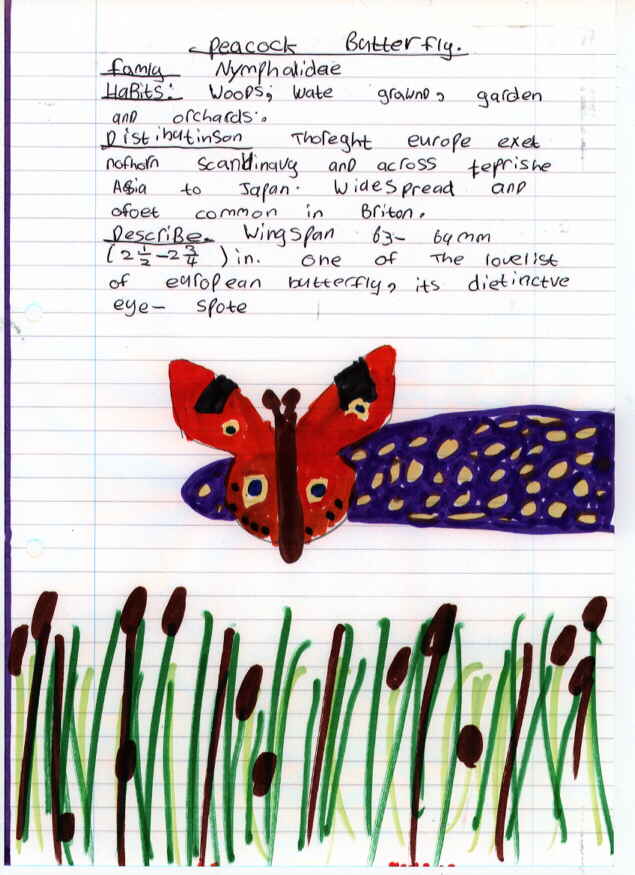 Peacock Butterfly.
Famly Nymphalidae
Habits: Woods, wate grawnd, garden
and orchards.
Distibutinson Thoreght europe exet
nofhorn scandinavy and across teprishe
Asia to Japan. Widespread and
ofoet common in Briton.
Describe. Wingspan 63- 69mm
(2 1/2 - 2 3/4) in. one of the lovelist
of european butterfly, its dietinctve
eye- spote